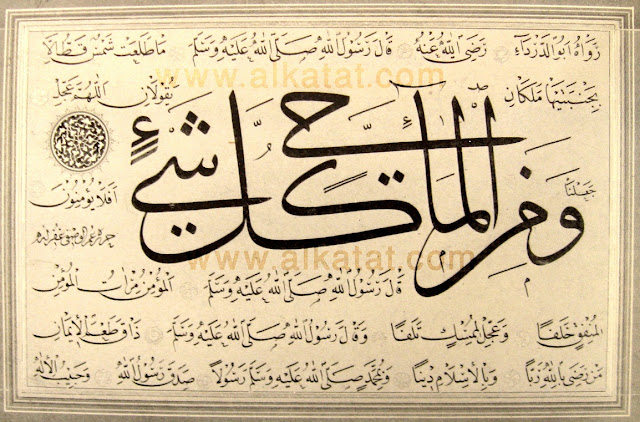 رَوَاهُ اَبُو الدَّرْدَاءِ رَضِيَ اللهُ عَنْهُ قَالَ رَسُولُ اللهِ صَلَّى اللهُ عَلَيْهِ وَسَلَّمَ مَا طَلَعَتْ شَمْسٌ قَطُّ اِلَّا
www.alkatat.com
بِجَنْبَتَيْهَا مَلَكَانِ يَقُولَانِ اَللّٰهُمَّ عَجِّلْ
وَجَعَلْنَا مِنَ الْمَاءِ كُلَّ شَيْءٍ حَيٍّ
اَفَلَا يُؤْمِنُونَ
www.alkatat.com
قَالَ رَسُولُ اللهِ صَلَّى اللهُ عَلَيْهِ وَسَلَّمَ اَلْمُؤْمِنُ مِرْاٰتُ الْمُؤْمِنِ
الْمُنْفِقِ خَلَفًا وَعَجِّلْ لِمُمْسِكٍ تَلَفًا وَقَالَ رَسُولُ اللهِ صَلَّى اللهُ عَلَيْهِ وَسَلَّمَ ذَاقَ طَعْمَ الْاِيمَانِ
مَنْ رَضِيَ بِاللهِ رَبًّا وَبِالْاِسْلَامِ دِينًا وَبِمُحَمَّدٍ صَلَّى اللهُ عَلَيْهِ وَسَلَّمَ رَسُولًا صَدَقَ رَسُولُ اللهِ وَحَبِيبُ الْاِلٰهِ